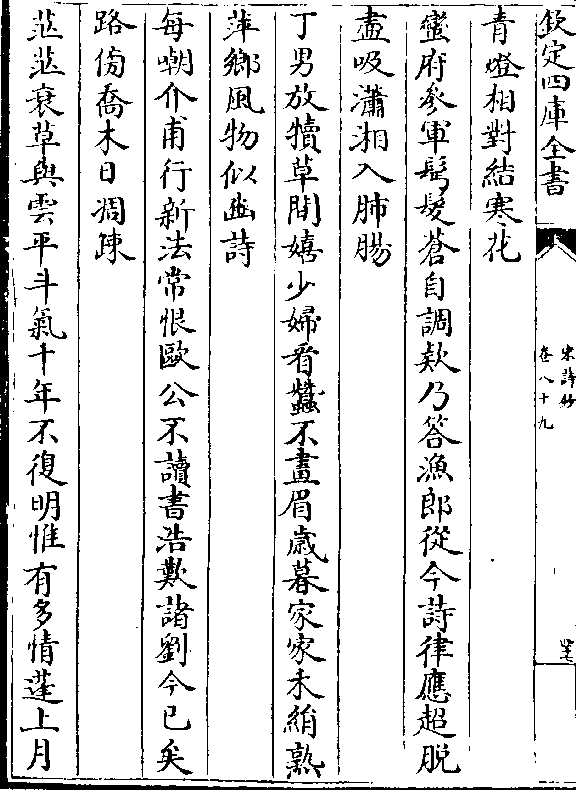 欽定四庫全書
宋詩鈔
卷八十九
青燈相對結寒花
蠻府參軍鬢髮蒼自調欵乃答漁郎從今詩律應超脫
盡吸瀟湘入肺腸
丁男放犢草間嬉少婦看蠶不畫眉歲暮家家禾絹熟
萍鄉風物似豳詩
每嘲介甫行新法常恨歐公不讀書浩歎諸劉今已矣
路傍喬木日凋踈
茫茫衰草與雲平斗氣十年不復明惟有多情蓬上月